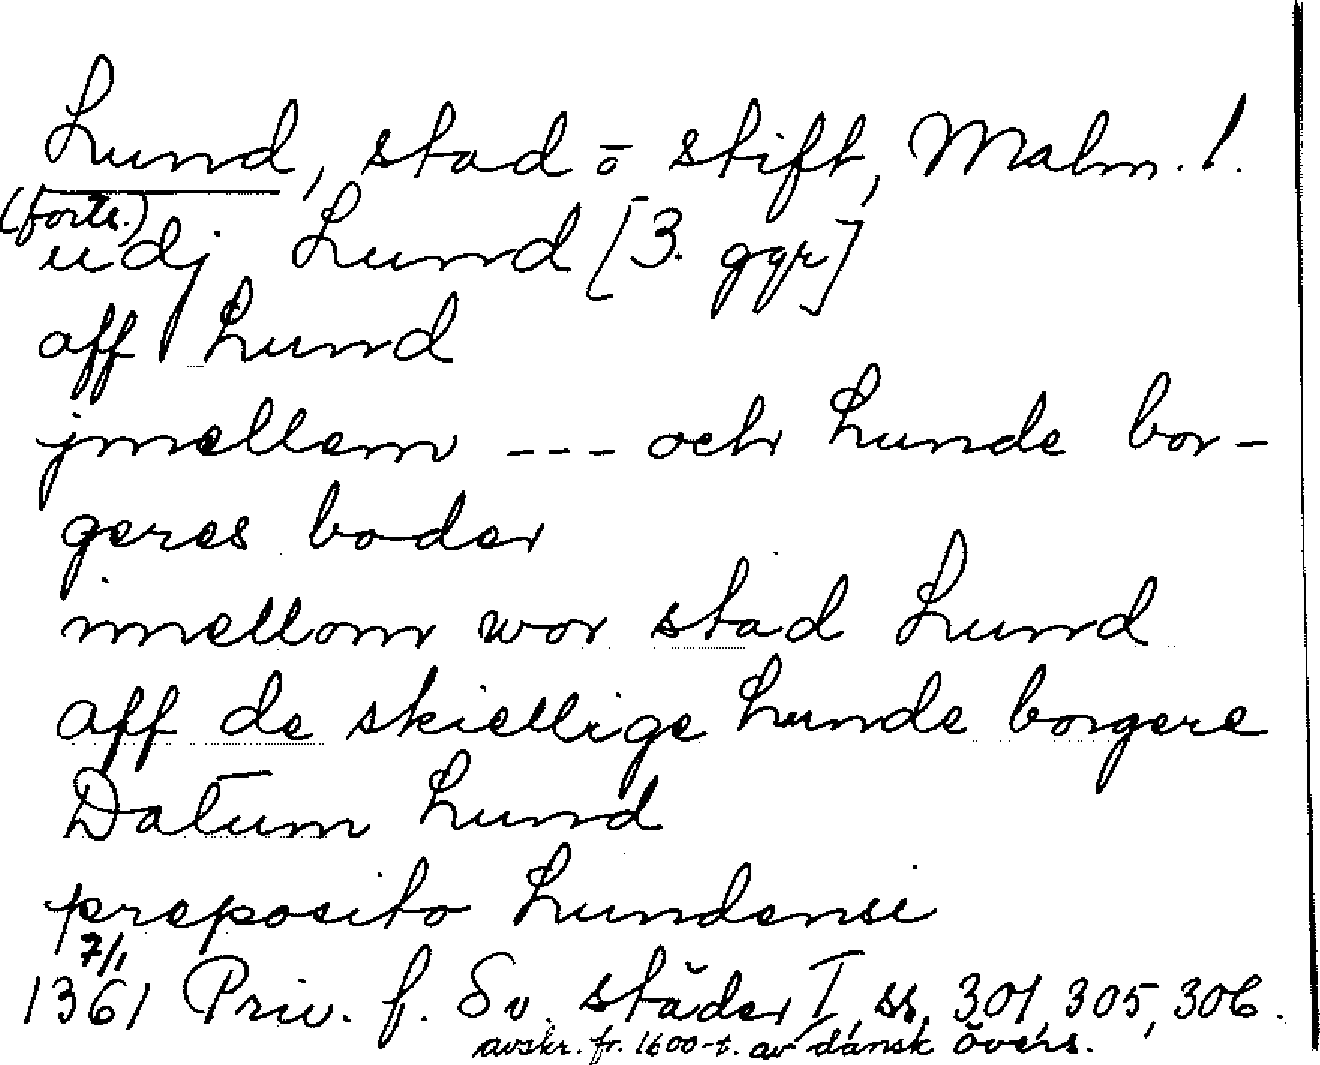 Lund, stad o stift, Malm. l.
(forts.)
udj Lund [3. ggr]
aff Lund
jmellem --- och Lunde bor-
geres boder
imellom wor stad Lund
aff de skiellige Lunde borgere
Datum Lund
preposito Lundensi
7/1
1361 Priv. f. Sv. städer I, ss. 301, 305, 306.
avskr. fr. 1600-t. av dansk övers.